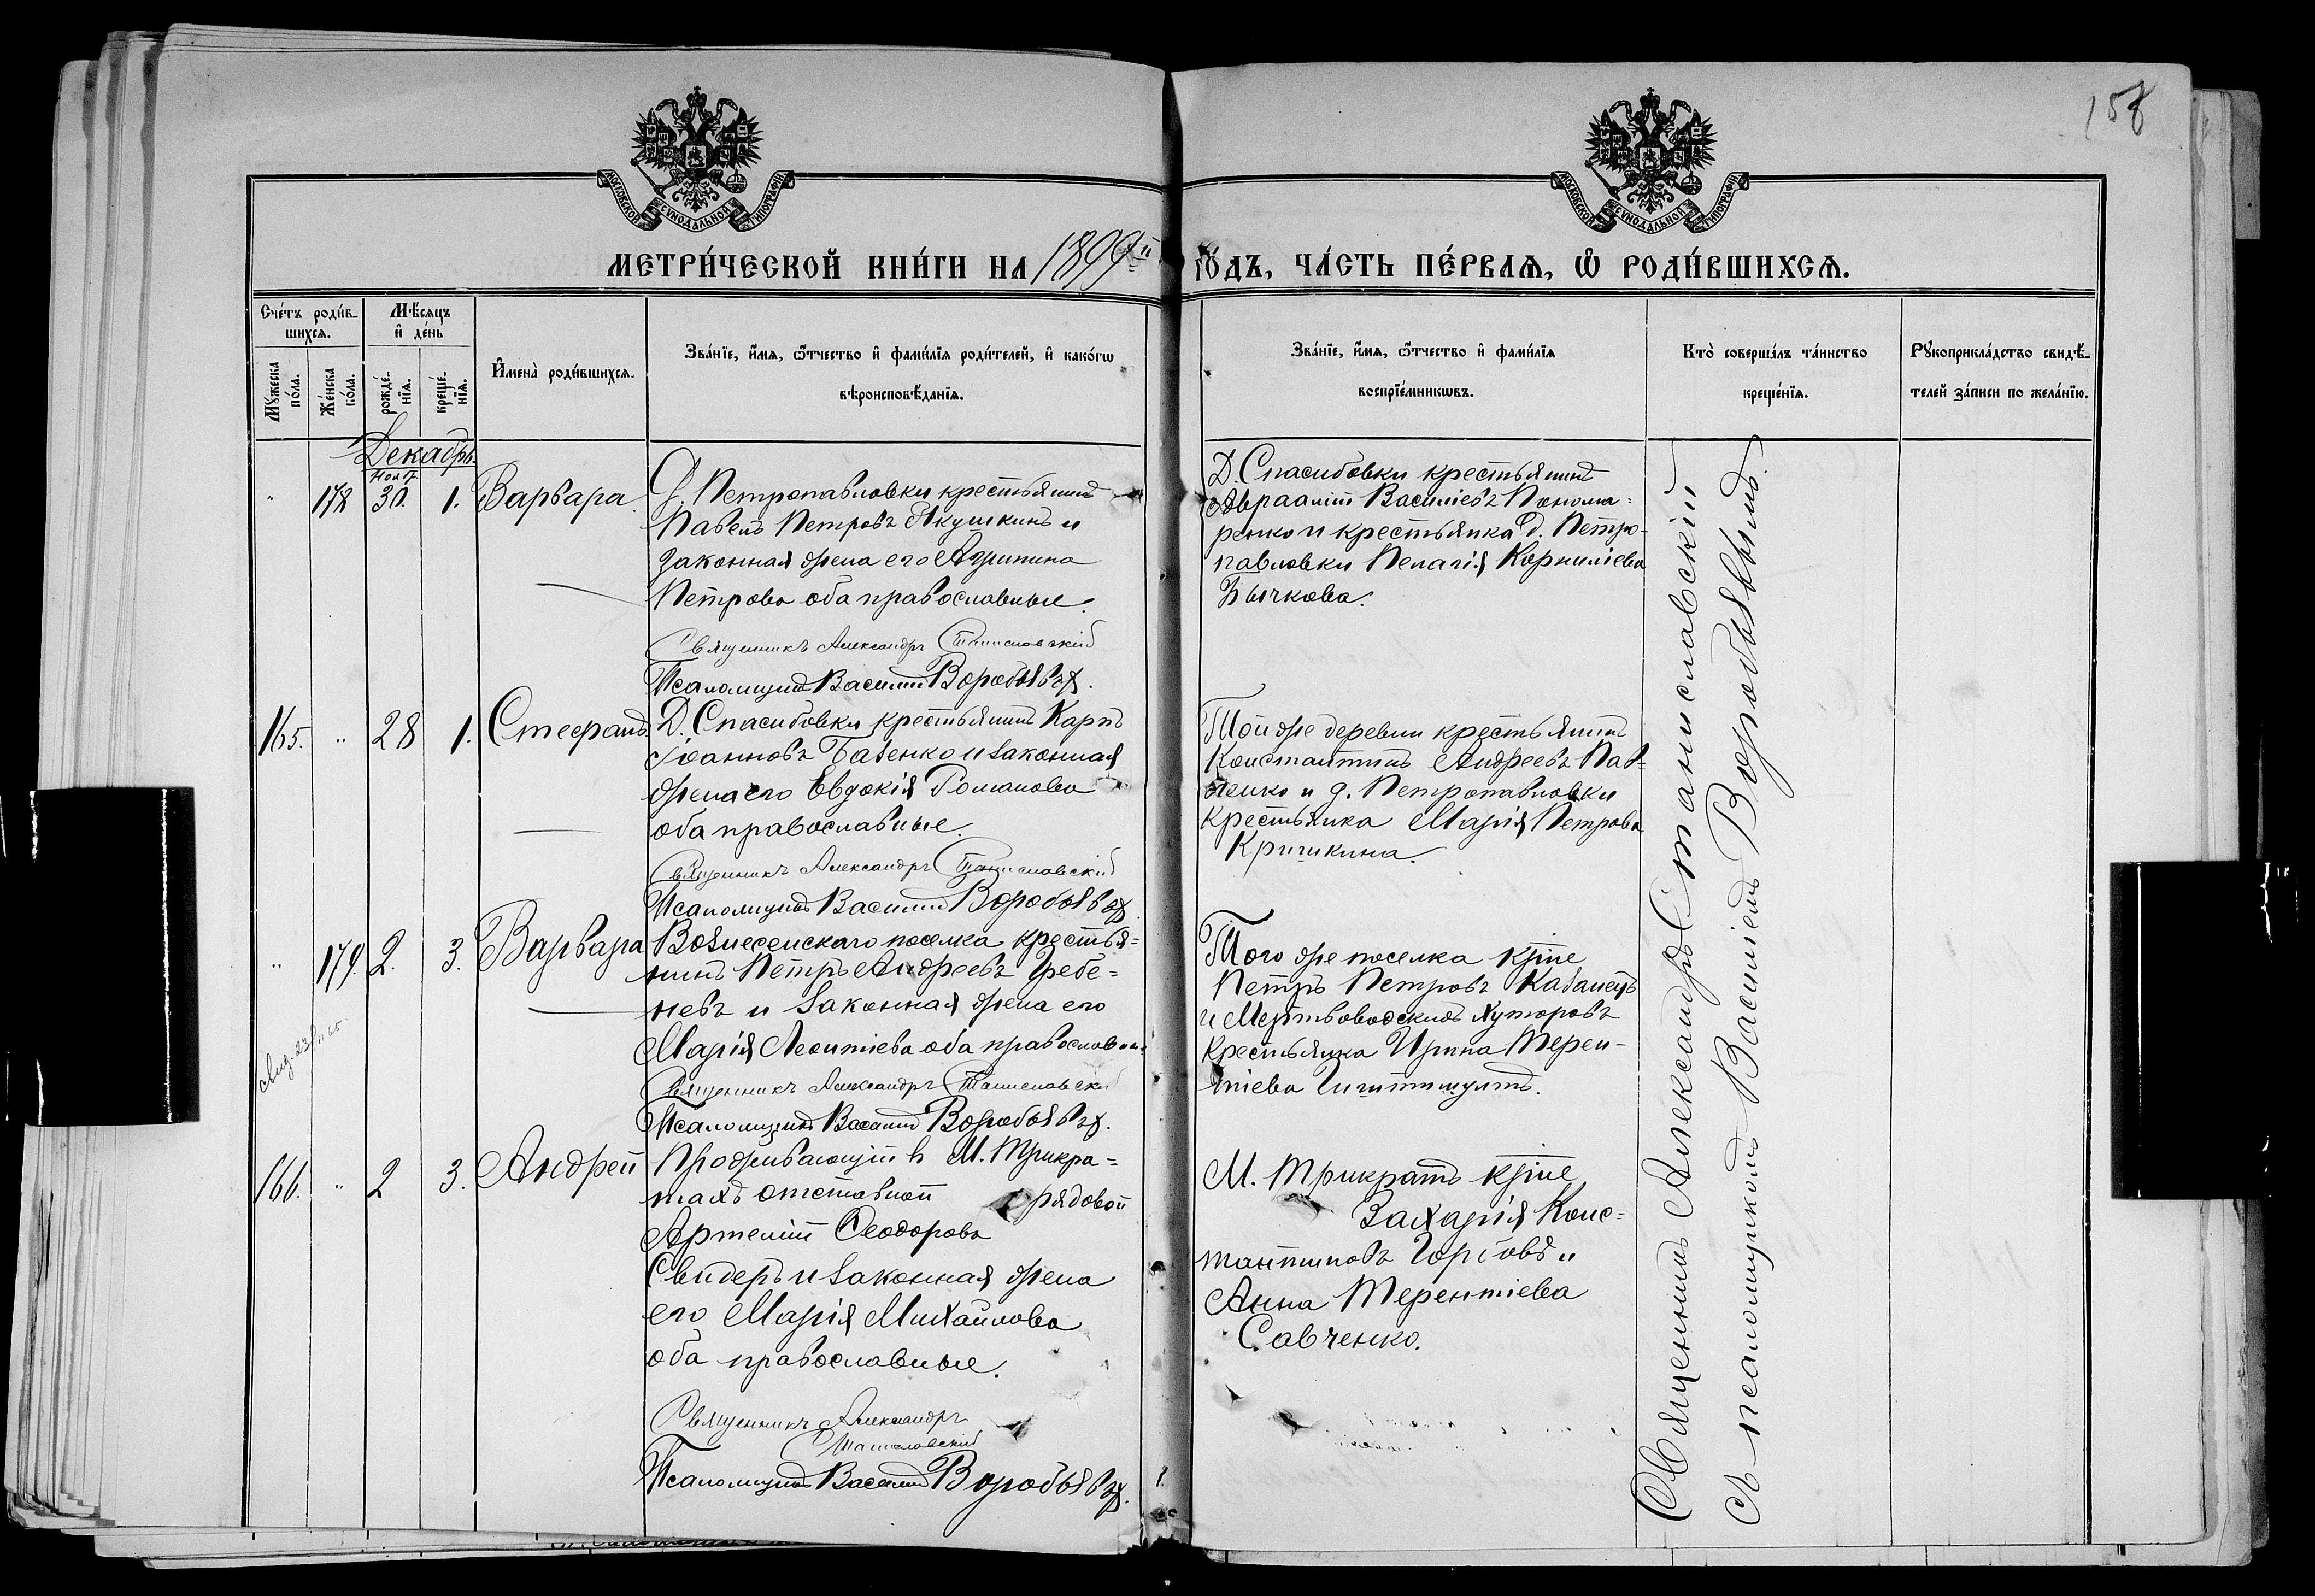 158
МОСКОВСКОЙ СѴНОДАЛЬНОЙ ТИПОГРАФІИ
МОСКОВСКОЙ СѴНОДАЛЬНОЙ ТИПОГРАФІИ
МЕТРИ́ЧЕСКОЙ КНИ́ГИ НА 1899й ГО́ДЪ, ЧА́СТЬ ПЕ́РВАѦ, Ѽ РОДИ́ВШИХСѦ.
Сче́тъ роди́в-
шихсѧ.
Мꙋжеска по́ла.
Же́нска по́ла.
Мѣ́сѧцъ
и҆ де́нь
рожде́-
нїѧ.
креще́-
нїѧ.
И҆мена̀ роди́вшихсѧ.
Зва́нїе, и҆́мѧ, ѻ҆́тчество и҆ фами́лїѧ роди́телей, и҆ како́гѡ
вѣроисповѣ́данїѧ.
Зва́нїе, и҆́мѧ, ѻ҆́тчество и҆ фами́лїѧ
воспрїе́мникѡвъ.
Кто̀ соверша́лъ та́инство
креще́нїѧ.
Рꙋкоприкла́дство свидѣ́-
телей за́писи по жела́нїю.
Декабрь
" 178 Нояб. 30. 1. Варвара.
Д. Петропавловки крестьянинъ
Павелъ Петровъ Якушкинъ и
законная жена его Агрипина
Петрова оба православные.
Священникъ Александръ Станиславскій
Псаломщикъ Василій Воробьевъ.
Д. Спасибовки крестьянинъ
Авраамій Василіевъ Понома-
ренко и крестьянка д. Петро-
павловки Пелагія Корниліева
Бычкова.
165. " 28 1. Стефанъ.
Д. Спасибовки крестьянинъ Карпъ
Іоанновъ Базенко и законная
жена его Евдокія Романова
оба православные.
Священникъ Александръ Станиславскій
Псаломщикъ Василій Воробьевъ.
Той же деревни крестьянинъ
Константинъ Андреевъ Пав-
ленко и д. Петропавловки
крестьянка Марія Петрова
Кришкина.
" 179. 2. 3. Варвара
Вознесенскаго поселка крестья-
нинъ Петръ Андреевъ Гребе-
невъ и законная жена его
Марія Леонтіева оба православн.
Священникъ Александръ Станиславскій
Псаломщикъ Василій Воробьевъ.
Того же поселка кр-не
Петръ Петровъ Кабанецъ
и Мертвоводскихъ хуторовъ
крестьянка Ирина Терен-
тіева
166. " 2 3. Андрей
Проживающій в М. Трикра-
тахъ отставной рядовой
Артемій Ѳеодоровъ
Свидеръ и законная жена
его Марія Михайлова
оба православные.
Священникъ Александръ
Станиславскій
Псаломщикъ Василій Воробьевъ.
М. Трикратъ кр-не
Захарія Конс-
тантиновъ и
Анна Терентіева
Савченко.
Священникъ Александръ Станиславскій
съ псаломщикомъ Василіемъ Воробьевымъ.